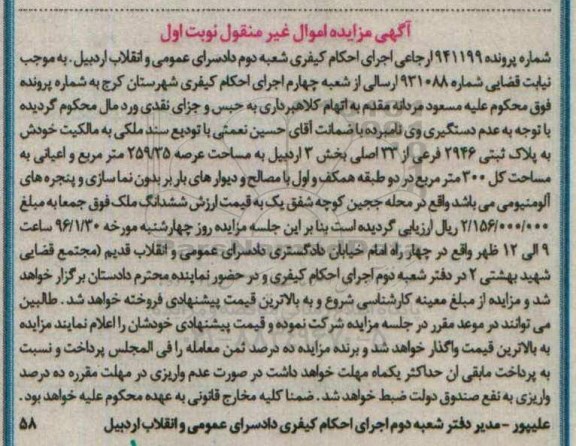 آگهی مزایده اموال غیر منقول نوبت اول
شماره پرونده ۹۴۱۱۹۹ ارجاعی اجرای احکام کیفری شعبه دوم دادسرای عمومی و انقلاب اردبیل. به موجب
نیابت قضایی شماره ۹۳۱۰۸۸ ارسالی از شعبه چهارم اجرای احکام کیفری شهرستان کرج به شماره پرونده
فوق محکوم علیه مسعود مردانه مقدم به اتهام کلاهبرداری به حبس و جزای نقدی ورد مال محکوم گردیده
با توجه به عدم دستگیری وی نامبرده با ضمانت آقای حسین نعمتی با تودیع سند ملکی به مالکیت خودش
به پلاک ثبتی ۲۹۴۶ فرعی از ۳۳ اصلی بخش ۳ اردبیل به مساحت عرصه ۲۵۹/۲۵ متر مربع و اعیانی به
مساحت کل ۳۰۰ متر مربع در دو طبقه همکف و اول با مصالح و دیوار های بار بر بدون نما سازی و پنجره های
آلومنیومی می باشد واقع در محله ججین کوچه شفق یک به قیمت ارزش ششدانگ ملک فوق جمعا به مبلغ
۲/۱۵۶/۰۰۰/۰۰۰ ریال ارزیابی گردیده است بنا بر این جلسه مزایده روز چهارشنبه مورخه ۹۶/۱/۳۰ ساعت
۹ الی ۱۲ ظهر واقع در چهار راه امام خیابان دادگستری دادسرای عمومی و انقلاب قدیم (مجتمع قضایی
شهید بهشتی ۲ در دفتر شعبه دوم اجرای احکام کیفری و در حضور نماینده محترم دادستان برگزار خواهد
شد و مزایده از مبلغ معینه کارشناسی شروع و به بالاترین قیمت پیشنهادی فروخته خواهد شد. طالبین
می توانند در موعد مقرر در جلسه مزایده شرکت نموده و قیمت پیشنهادی خودشان را اعلام نمایند مزایده
به بالاترین قیمت واگذار خواهد شد و برنده مزایده ده درصد ثمن معامله را فی المجلس پرداخت و نسبت
به پرداخت مابقی ان حداکثر یکماه مهلت خواهد داشت در صورت عدم واریزی در مهلت مقرره ده درصد
واریزی به نفع صندوق دولت ضبط خواهد شد. ضمنا کلیه مخارج قانونی به عهده محکوم علیه خواهد بود.
علیپور - مدیر دفتر شعبه دوم اجرای احکام کیفری دادسرای عمومی و انقلاب اردبیل ۵۸